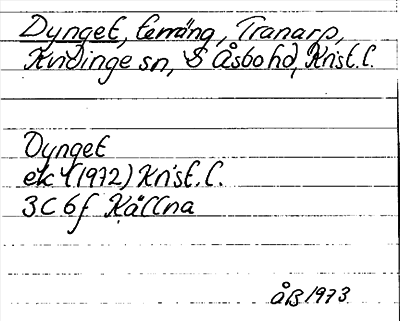 Dynget, terräng, Tranarp,
Kvidinge sn, S Åsbo hd, Krist. l.
Dynget
ek 4 (1972) Krist. l.
3C 6f Källna
ÅB 1973